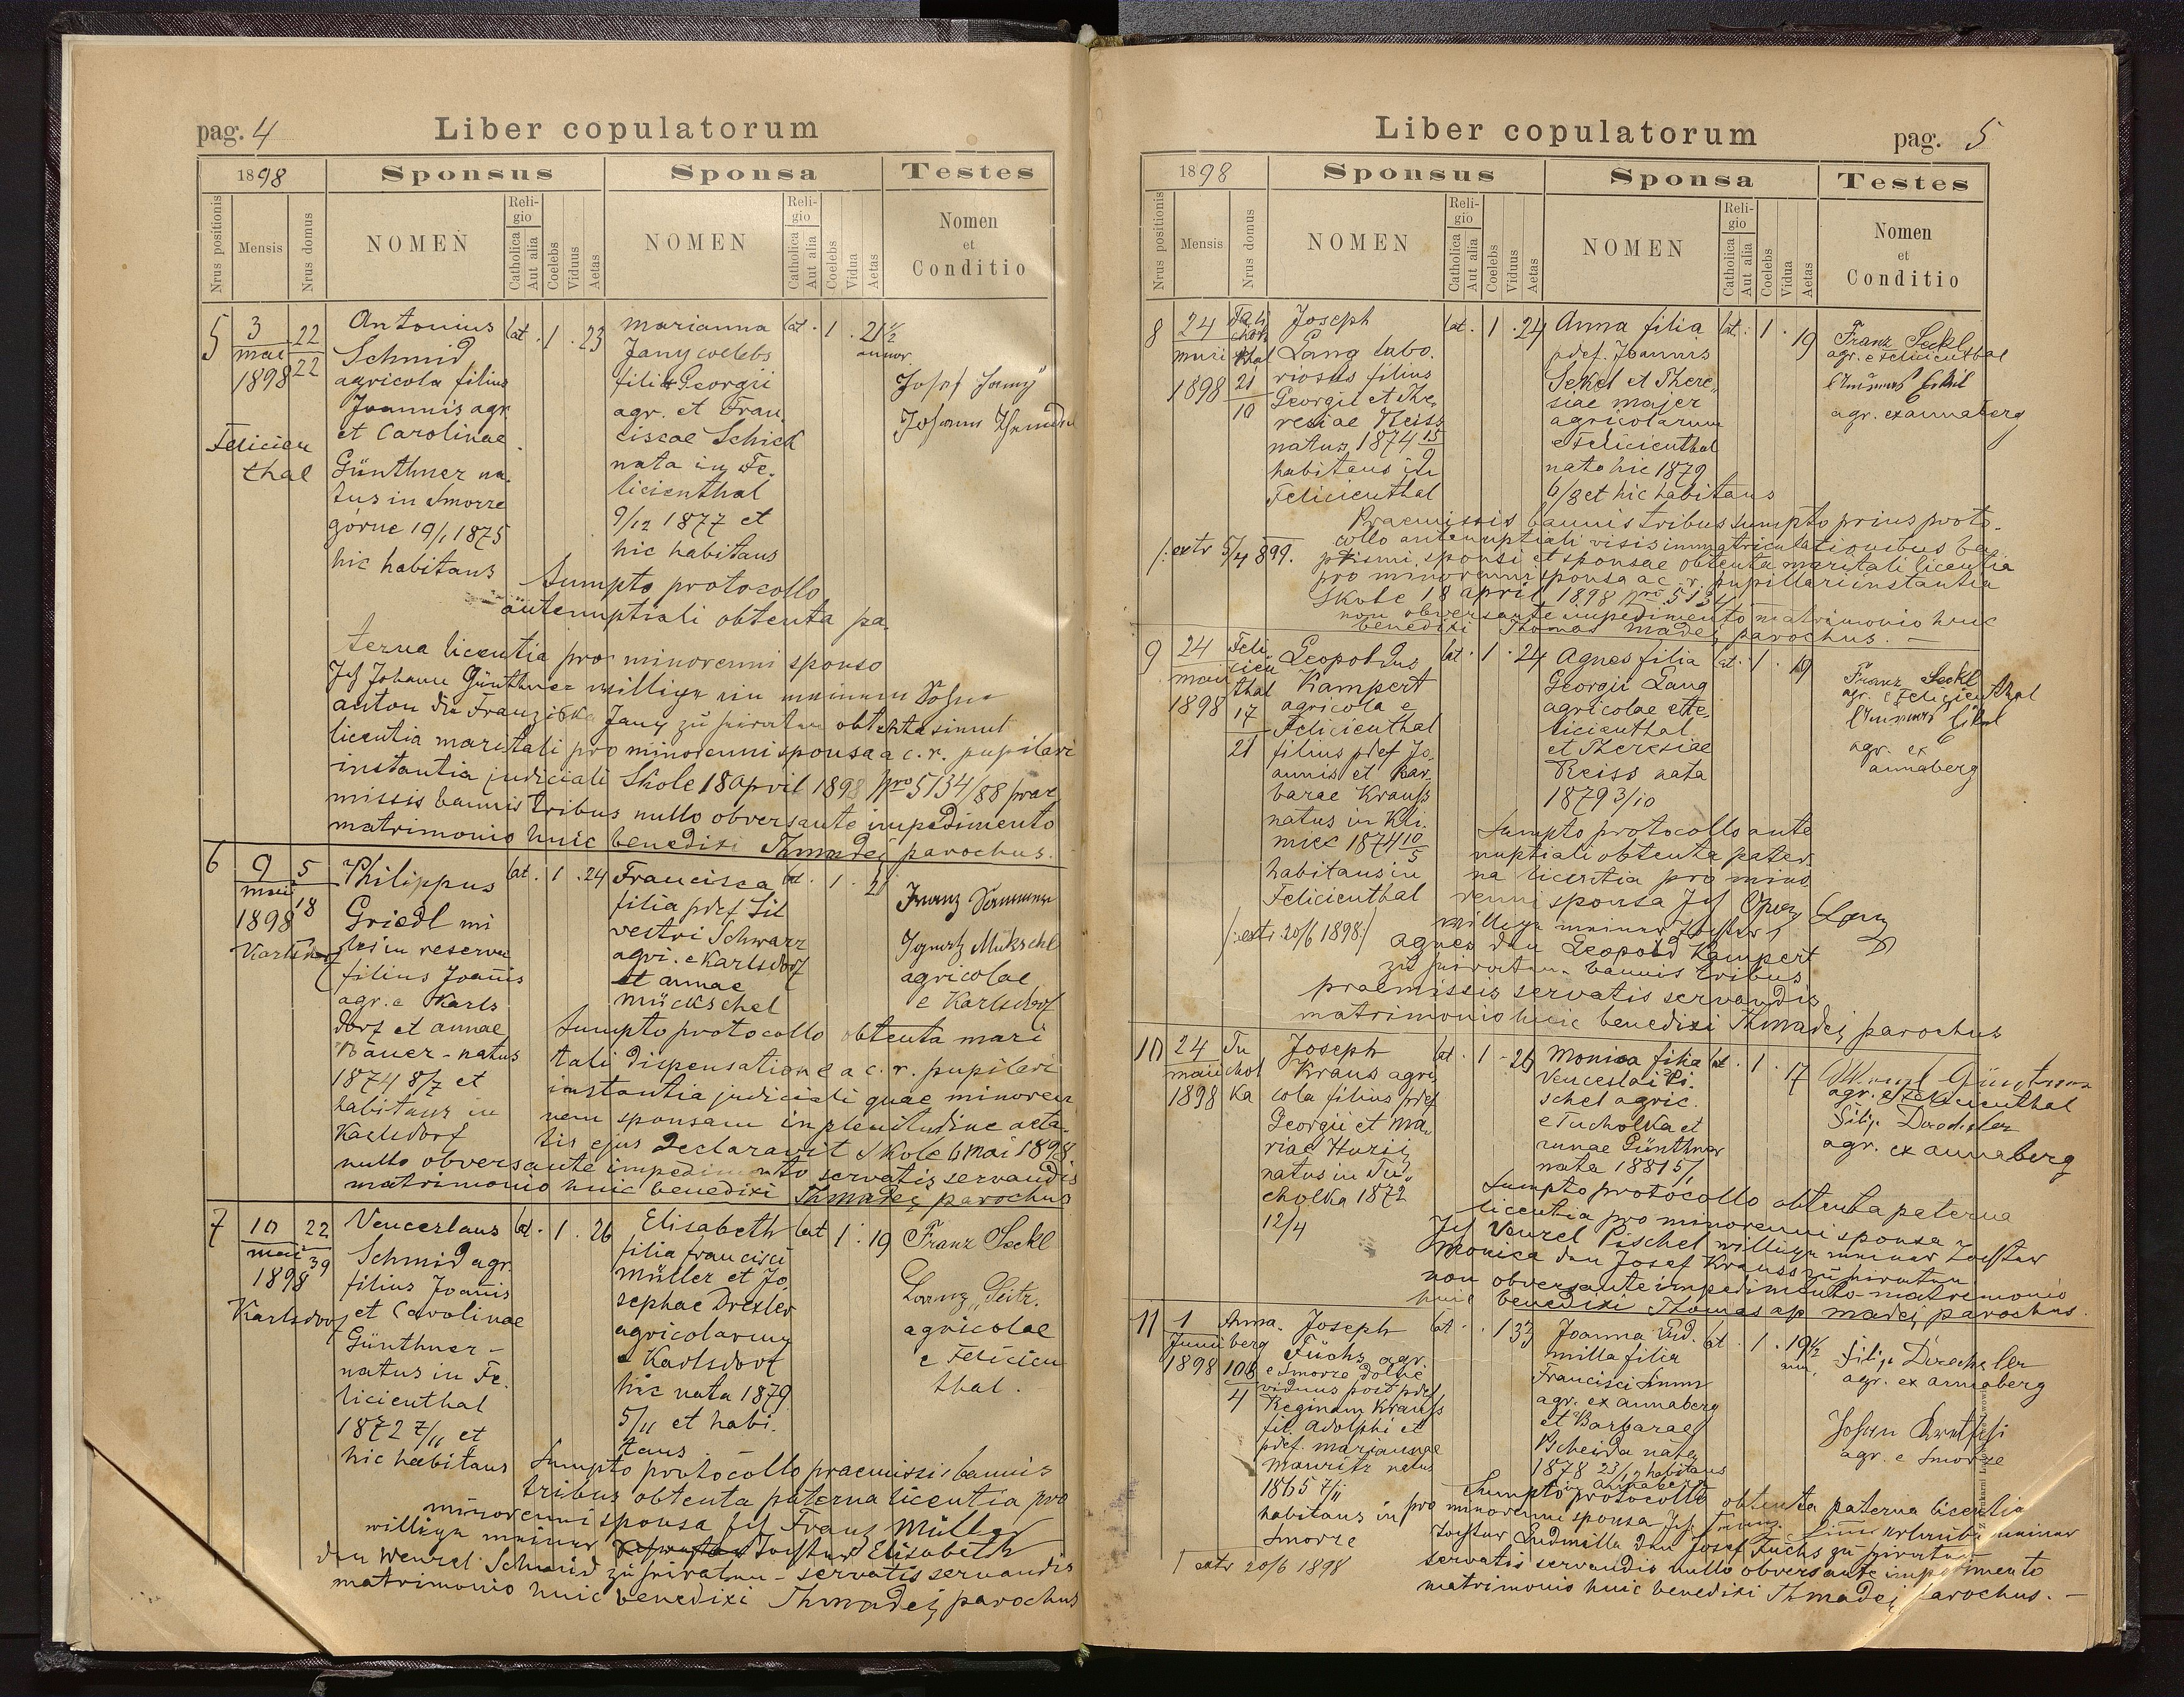 pag. 4
Liber copulatorum
1898
Sponsus
Sponsa
Testes
Nrus positionis
Mensis
Nrus domus
NOMEN
Religio
Catholica
Aut alia
Coelebs
Viduus
Aetas
NOMEN
Religio
Catholica
Aut alia
Coelebs
Vidua
Aetas
Nomen
et
Conditio
5
3
maii
1898
22
22
Felicien
thal
Antonius
Schmid
agricola filius
Joannis agr.
et Carolinae
Günthner na.
tus in Smorze
górne 19/1 1875
hic habitans
Cat. 1. 23
marianna
Jany coelebs
filia Georgii
agr. et Fran
ciscae Schick
nata in Fe.
licienthal
9/12 1877 et
hic habitans
Cat. 1. 21 1/2
annor
Josef Jany
Johann
Sumpto protocollo
antenuptiali obtenta pa.
terna licentia pro minorenni sponso
Ich Johann Günthner willige ein meinem Sohne
anton die Franziska Jany zu heiraten obtenta simul
licentia maritali pro minorenni sponsa a c. r. pupilari
instantia judiciali Skole 18 April 1898 Nro 5134/88 prae
missis bannis tribus nullo obversante impedimento
matrimonio huic benedixi Thmadej parochus.
6
9
maii
1898
5
18
Karlsdorf
Philippus
Griedl mi
les in reserva
filius Joannis
agr. e Karls
dorf et annae
Bauer - natus
1874 8/7 et
habitans in
Karlsdorf
Cat. 1. 24
Francisca
filia pdef Sil
vestri Schwarz
agri. e Karlsdorf
et annae
mückschel
Cat. 1. 21
Franz
Ignatz Mükschl
agricolae
e Karlsdorf
Sumpto protocollo obtenta mari
tali dispensatione a c. r. pupilari
instantia judiciali quae minoren
nem sponsam in plenitudine aeta.
tis ejus declaravit Skole 6 mai 1898
nullo obversante impedimento servatis servandis
matrimonio huic benedixi Thmadej parochus
7
10
maii
1898
22
39
Karlsdorf
Venceslaus
Schmid agr.
filius Joannis
et Carolinae
Günthner -
natus in Fe.
licienthal
1872 7/11 et
hic habitans
Cat. 1. 26
Elisabeth
filia francisci
müller et Jo
sephae Drexler
agricolarum
e Karlsdorf
hic nata 1879
5/11 et habi.
tans
Cat 1. 19
Franz Seckl
Lorenz Seitz.
agricolae
e Felicien
thal.
Sumpto protocollo praemissis bannis
tribus obtenta paterna licentia pro
minorenni sponsa Ich Franz Müller
willige meiner Tochter Elisabeth
den Wenzel Schmid zu heiraten - servatis servandis
matrimonio huic benedixi Thmadej parochus
Liber copulatorum
pag. 5
1898
Sponsus
Sponsa
Testes
Nrus positionis
Mensis
Nrus domus
NOMEN
Religio
Catholica
Aut alia
Coelebs
Viduus
Aetas
NOMEN
Religio
Catholica
Aut alia
Coelebs
Vidua
Aetas
Nomen
et
Conditio
8
24
maii
1898
thal
21
10
Joseph
Lang labo.
riosus filius
Georgii et The
resiae Reiss
natus 1874 15/9
habitans in
Felicienthal
Cat. 1. 24
Anna filia
pdef. Joannis
Sekel et There„
siae majer
agricolarum
e Felicienthal
nata hic 1879
6/8 et hic habitans
Cat. 1. 19
Franz Seckl
agr. e felicienthal
agr. ex annaberg
Praemissis bannis tribus sumpto prius proto.
collo antenuptiali visis immatriculationibus ba
ptismi, sponsi et sponsae obtenta maritali licentia
pro minorenni sponsa a c. r. pupillari instantia
Skole 18 april 1898 Nro 5134
non obversante impedimento matrimonio huic
benedixi Thomas madej parochus. —
extr 5/4 899.
9
24
maii
1898
Feli
cien
thal
17
21
Leopoldus
Kampert
agricola e
Felicienthal
filius pdef Jo.
annis et Bar.
barae Krauss
natus in Kli.
miec 1874 10/5
habitans in
Felicienthal
Cat. 1. 24
Agnes filia
Georgii Lang
agricolae e Fe,
licienthal
et Theresiae
Reiss nata
1879 3/10
Cat. 1. 19
Franz Seckl
agr. e Felizienthal
agr. ex
annaberg
Sumpto protocollo ante
nuptiali obtenta pater.
na licentia pro mino
renni sponsa Ich Georg Lang
willige meiner Tochter
agnes den Leopold Kampert
zu heiraten - bannis tribus
praemissis servatis servandis
matrimonio huic benedixi Thmadej parochus
/: extr 20/6 1898 /
10
24
maii
1898
Tu
chol
ka
Joseph
Kraus agri,
cola filius pdef
Georgii et Ma,
riae Huzij
natus in Tu„
cholka 1872
12/4
Cat. 1 - 26
Monica filia
Venceslai Pi.
schel agric.
e Tucholka et
annae Günthner
nata 1881 5/1
Cat. 1. 17
agr. e Felicienthal
Filip Drechsler
agr. ex annaberg
Sumpto protocollo obtenta paterna
licentia pro minorenni sponsa
Ich Venzel Pischel willige meiner Tochter
monica den Josef Krauss zu heiraten
non obversante impedimento - matrimonio
huic benedixi Thomas ap madej parochus.
11
1
Junii
1898
Anna.
berg
108
4
Joseph
Füchs agr.
e Smorze dolne
viduus post pdef
Reginam Krauss
fil. adolphi et
pdef. mariannae
Mauritz natus
1865 7/11
habitans in
Smorze
Cat. . 1 33
Joanna Lud.
milla filia
Francisci
agr. ex annaberg
et Barbarae
Pscheida nata
1878 23/12 habitans
in annaberg
Cat. 1. 19 1/2
ann.
Filip Drechsler
agr. ex annaberg
Johan
agr. e Smorze
Sumpto protocollo obtenta paterna licentia
pro minorenni sponsa Ich Franz erlaube meiner
Tochter Ludmilla den Josef Fuchs zu heiraten
servatis servandis nullo obversante impedimento
matrimonio huic benedixi Thmadej parochus. —
extr 20/6 1898